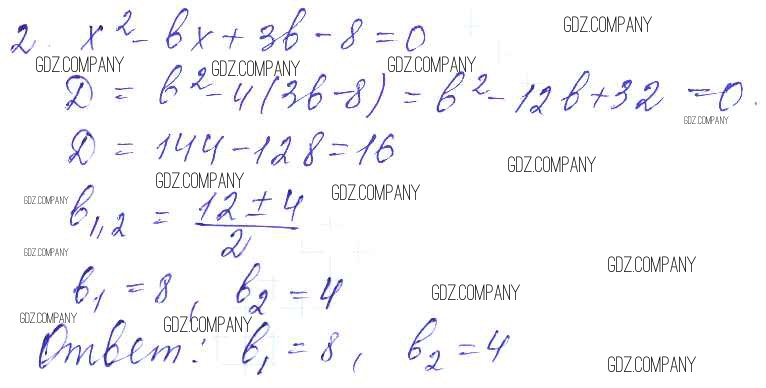 2. x² - bx + 3b - 8 = 0
GDZ.COMPANY
GDZ.COMPANY GDZ.COMPANY GDZ.COMPANY
D = b² - 4(3b - 8) = b² - 12b + 32 = 0.
GDZ.COMPANY
D = 144 - 128 = 16
GDZ.COMPANY
GDZ.COMPANY GDZ.COMPANY
GDZ.COMPANY
b₁,₂ = (12 ± 4)/2
GDZ.COMPANY
GDZ.COMPANY
b₁ = 8, b₂ = 4
GDZ.COMPANY
GDZ.COMPANY GDZ.COMPANY
Ответ: b₁ = 8, b₂ = 4
GDZ.COMPANY